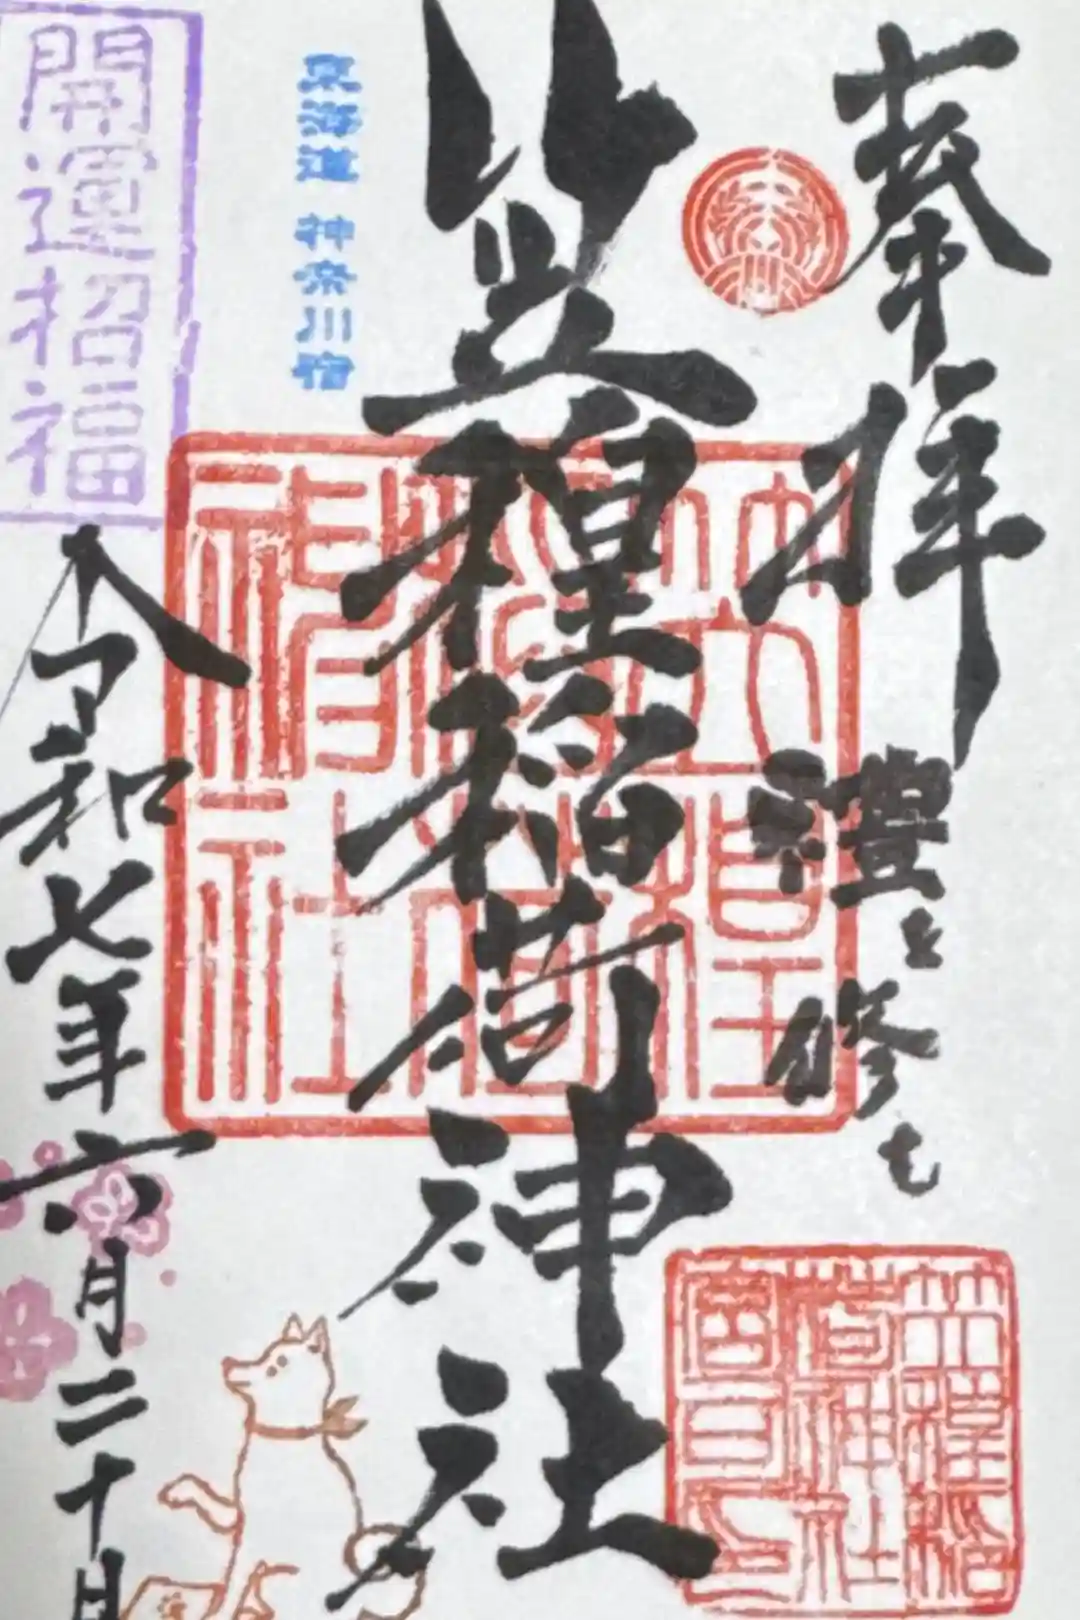 奉拝
禮 修
笠䅣稲荷神社
笠䅣
稲荷
神社
笠䅣稲
荷神社
宮司印
東海道 神奈川宿
開運招福
令和七年六月二十日